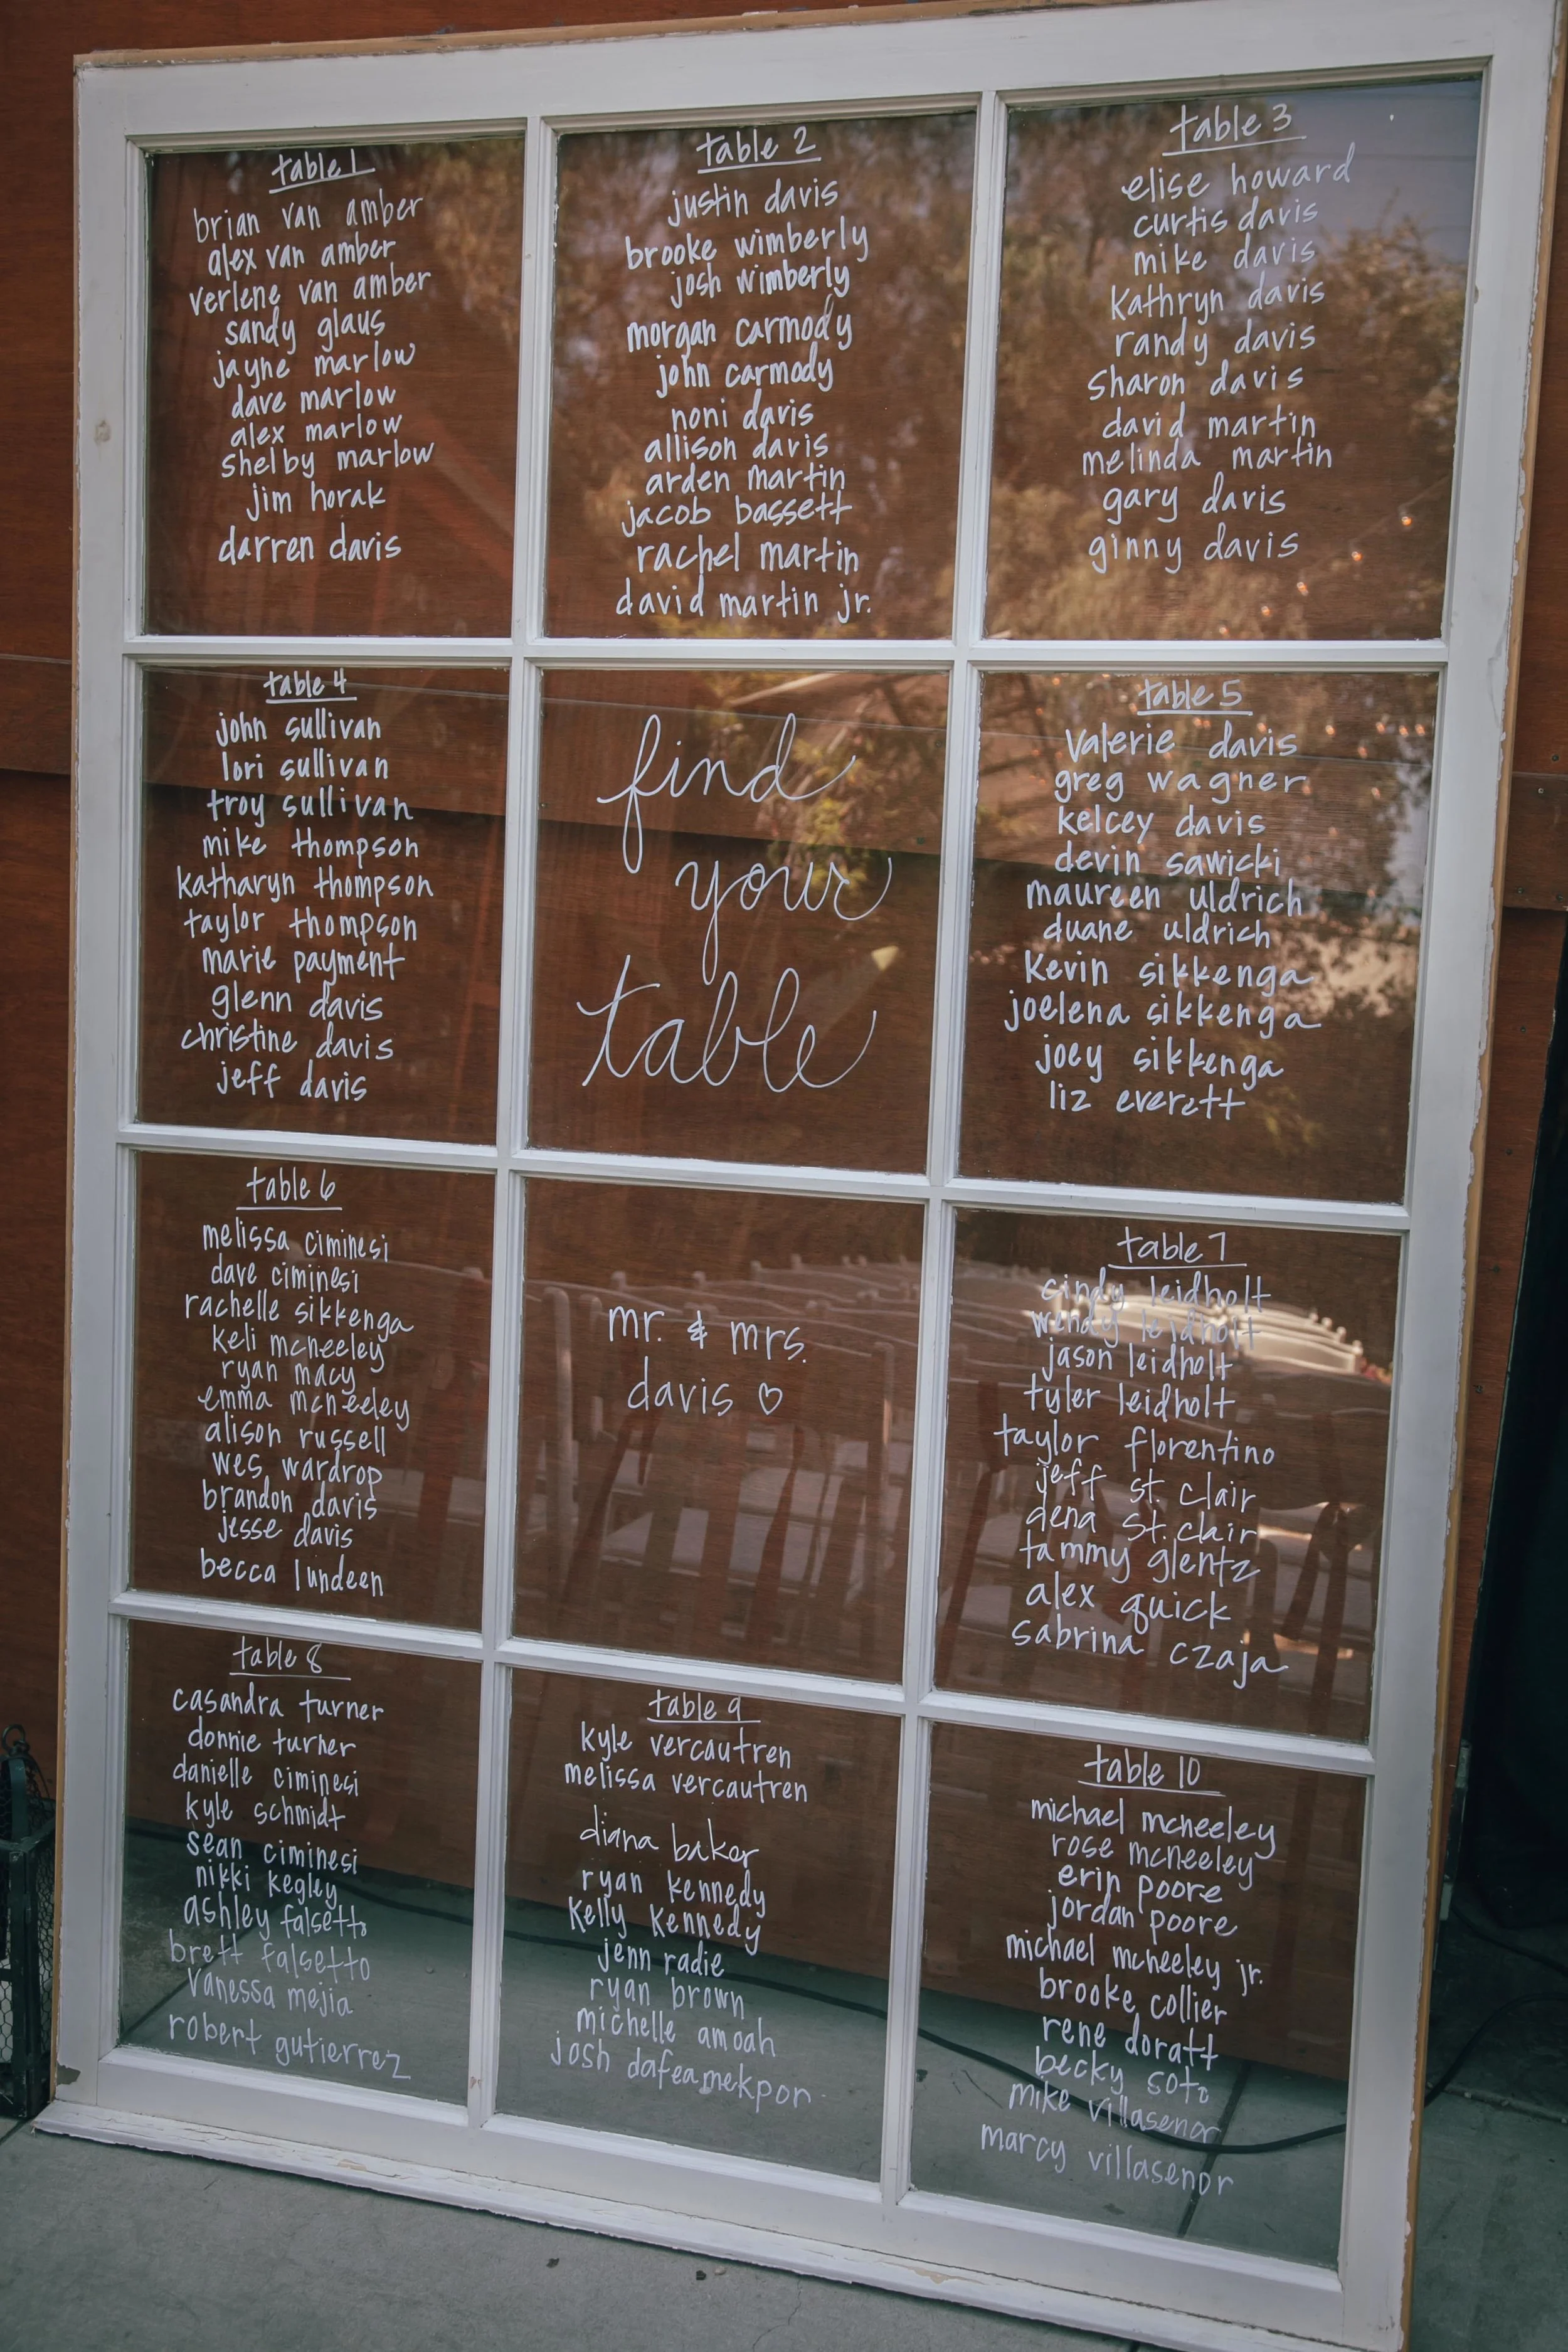 table 1
brian van amber
alex van amber
verlene van amber
sandy glaus
jayne marlow
dave marlow
alex marlow
shelby marlow
jim horak
darren davis
table 2
justin davis
brooke wimberly
josh wimberly
morgan carmody
john carmody
noni davis
allison davis
arden martin
jacob bassett
rachel martin
david martin jr.
table 3
elise howard
curtis davis
mike davis
kathryn davis
randy davis
sharon davis
david martin
melinda martin
gary davis
ginny davis
table 4
john sullivan
lori sullivan
troy sullivan
mike thompson
katharyn thompson
taylor thompson
marie payment
glenn davis
christine davis
jeff davis
find
your
table
table 5
valerie davis
greg wagner
kelcey davis
devin sawicki
maureen uldrich
duane uldrich
kevin sikkenga
joelena sikkenga
joey sikkenga
liz everett
table 6
melissa ciminesi
dave ciminesi
rachelle sikkenga
keli mcneeley
ryan macy
emma mcneeley
alison russell
wes wardrop
brandon davis
jesse davis
becca lundeen
mr. & mrs.
davis ♡
table 7
cindy leidholt
wendy leidholt
jason leidholt
tyler leidholt
taylor florentino
jeff st. clair
dena st. clair
tammy glentz
alex quick
sabrina czaja
table 8
casandra turner
donnie turner
danielle ciminesi
kyle schmidt
sean ciminesi
nikki kegley
ashley falsetto
brett falsetto
vanessa mejia
robert gutierrez
table 9
kyle vercautren
melissa vercautren
diana baker
ryan kennedy
kelly kennedy
jenn radie
ryan brown
michelle amoah
josh dafeamekpor
table 10
michael mcneeley
rose mcneeley
erin poore
jordan poore
michael mcneeley jr.
brooke collier
rene doratt
becky soto
mike villasenor
marcy villasenor